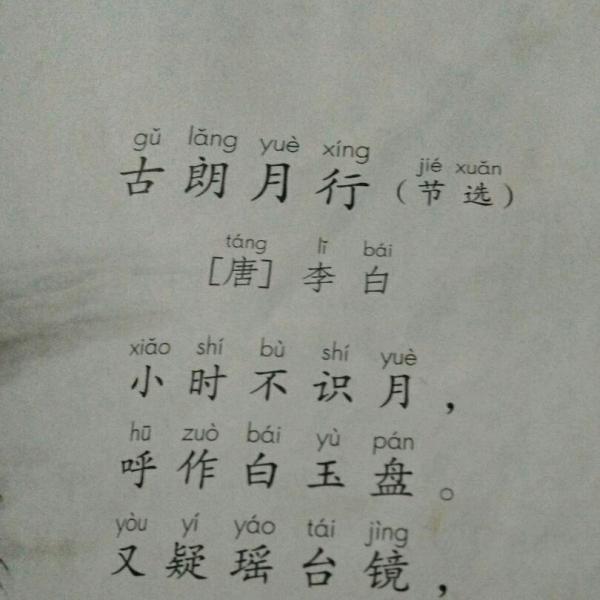 gǔ lǎng yuè xíng jié xuǎn
古朗月行（节选）
táng lǐ bái
［唐］李白
xiǎo shí bù shí yuè
小时不识月，
hū zuò bái yù pán
呼作白玉盘。
yòu yí yáo tái jìng
又疑瑶台镜，